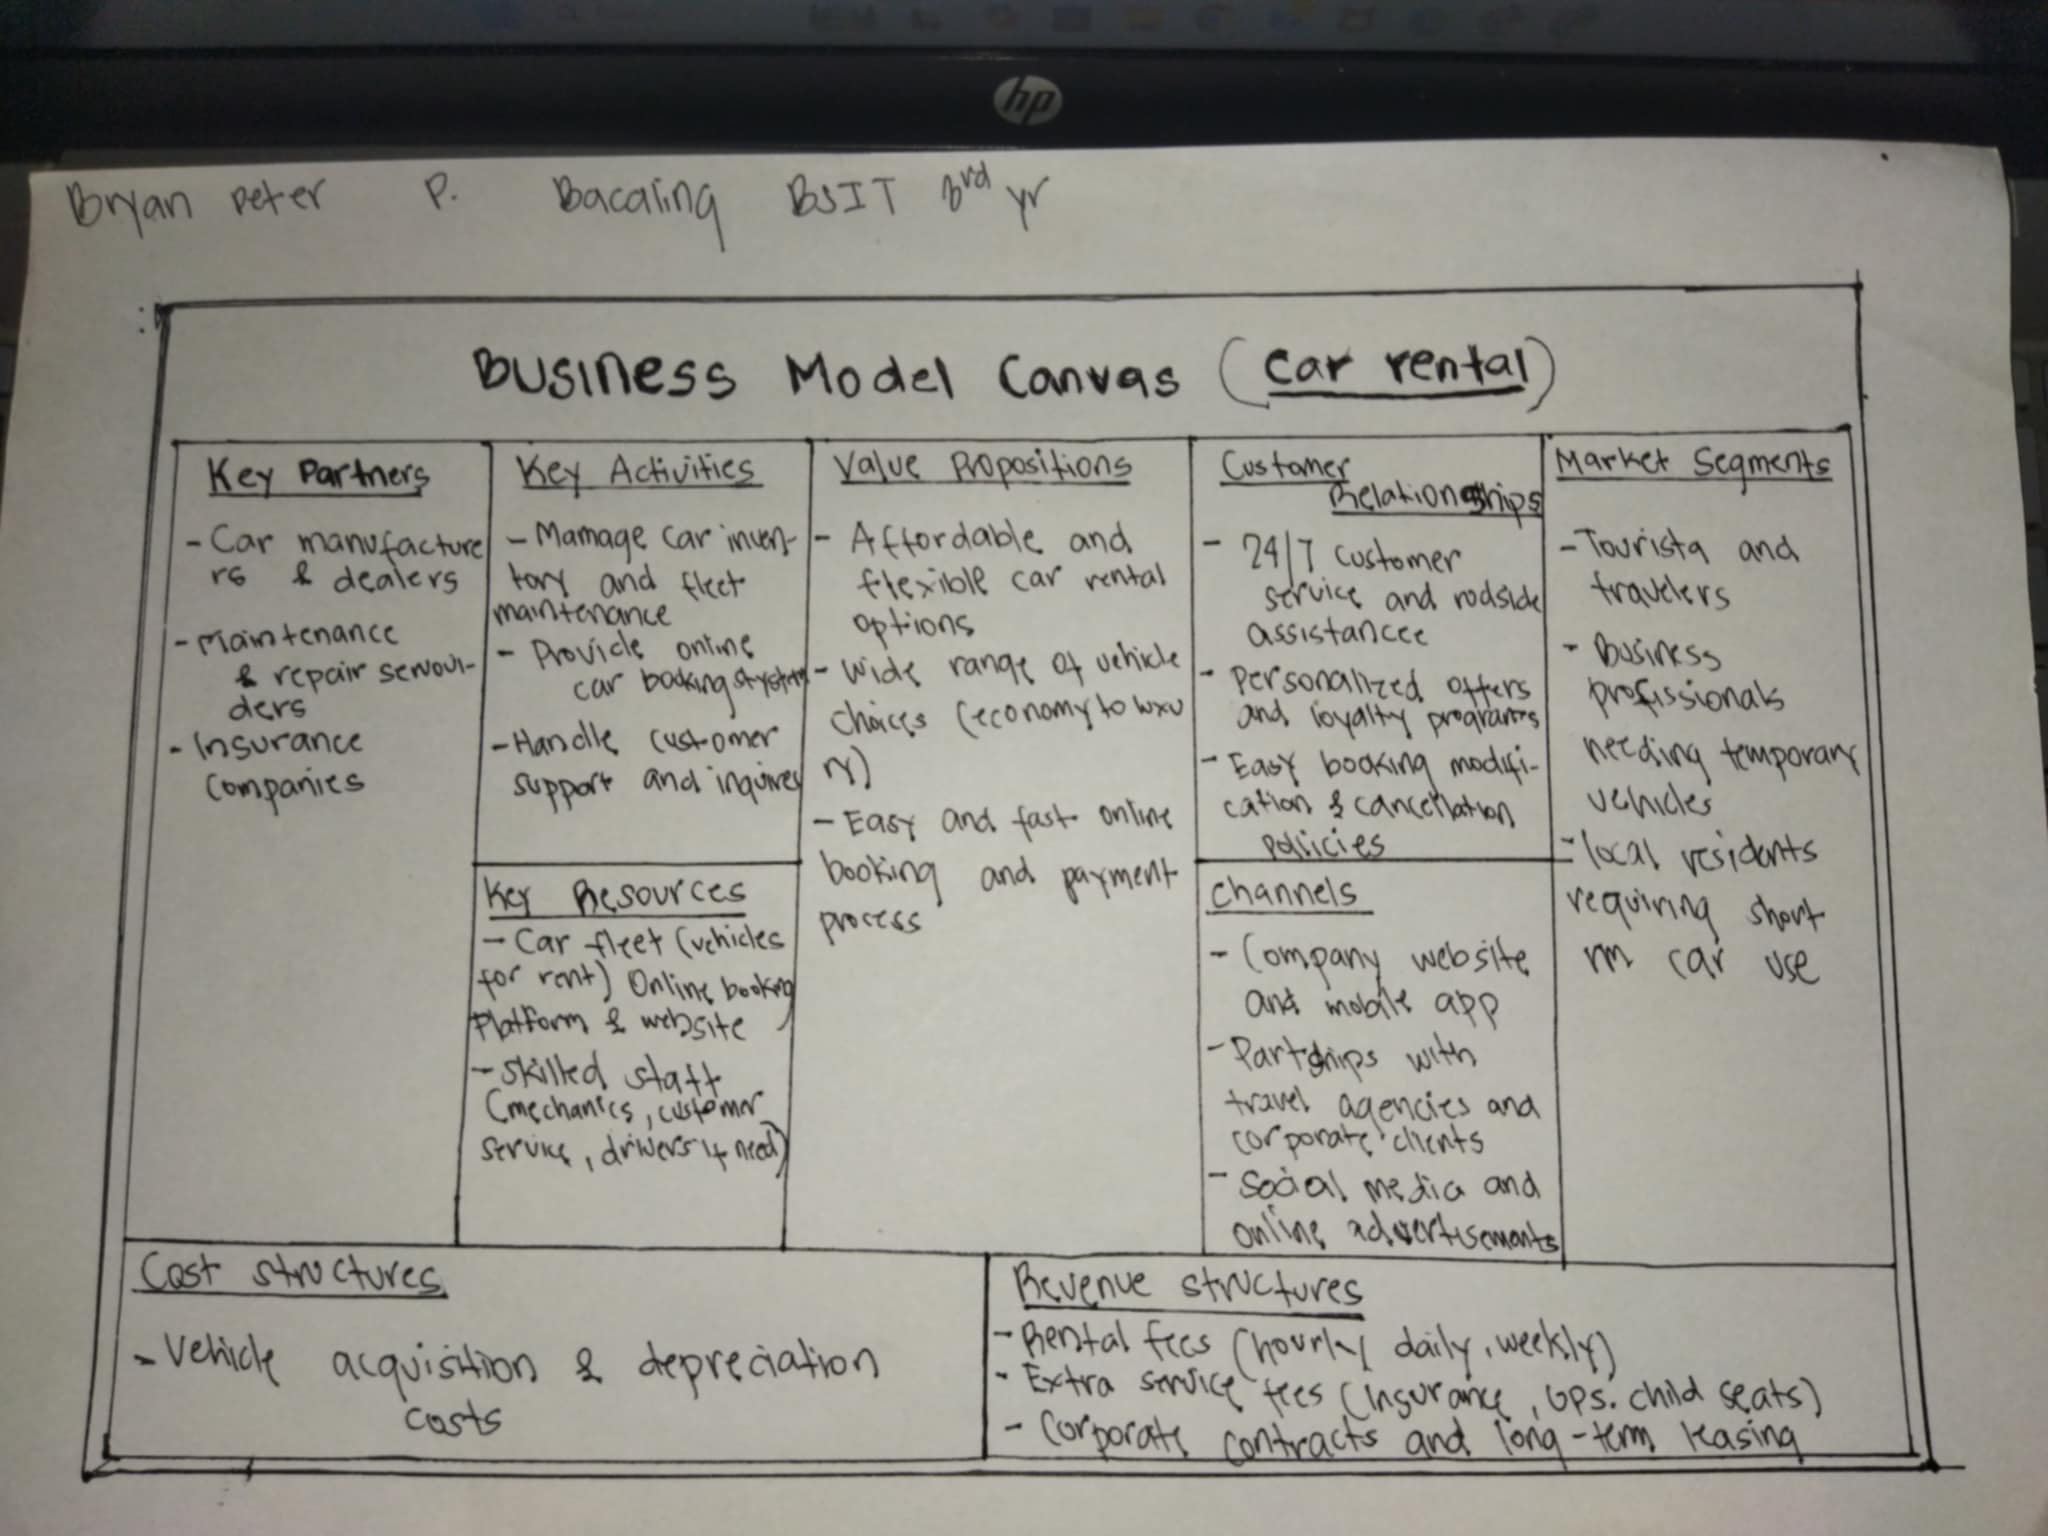 hp
Bryan Peter P. Bacaling BSIT 3rd yr
Business Model Canvas (car rental)
Key Partners
- Car manufacture
rs & dealers
- Maintenance
& repair
ders
- Insurance
companies
Key Activities
- Mamage car inven-
tory and fleet
maintenance
- Provide online
car booking
- Handle customer
support and inquires
Key Resources
- Car fleet (vehicles
for rent) Online booking
Platform & website
- Skilled staff
(mechanics, customer
service, drivers if need)
Value Propositions
- Affordable and
flexible car rental
options
- Wide range of vehicle
choices (economy to luxu
ry)
- Easy and fast online
booking and payment
process
Customer
Relationships
- 24/7 customer
service and rodside
assistancee
- Personalized offers
and loyalty programs
- Easy booking modifi-
cation & cancellation
policies
Channels
- Company website
and mobile app
- Partships with
travel agencies and
corporate clients
- Social media and
online advertisements
Market Segments
- Tourista and
travelers
- Business
professionals
needing temporary
vehicles
- local residents
requiring short
rm car use
Cost structures
- Vehicle acquisition & depreciation
costs
Revenue structures
- Rental fees (hourly daily, weekly)
- Extra service fees (Insurance, GPS. child seats)
- Corporate contracts and long-term leasing